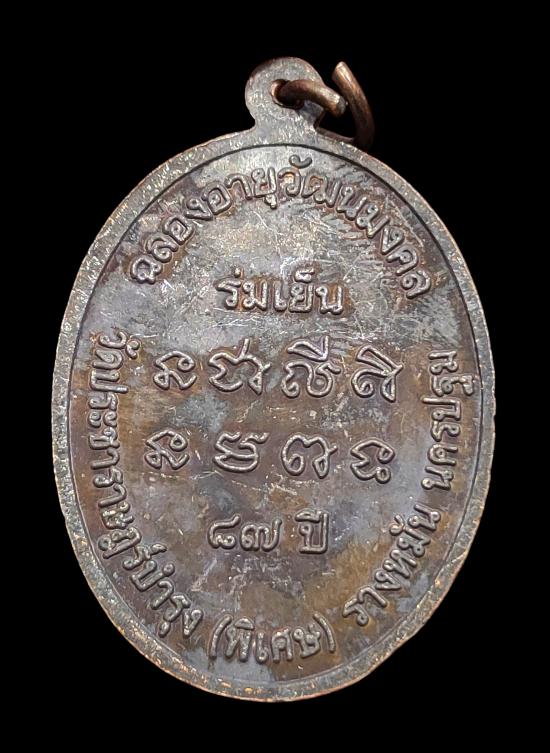 ฉลองอายุวัฒนมงคล
ร่มเย็น
น ชา ลี ติ
๘๗ ปี
วัดประชาราษฎร์บำรุง (พิเศษ) รางหมัน นครปฐม